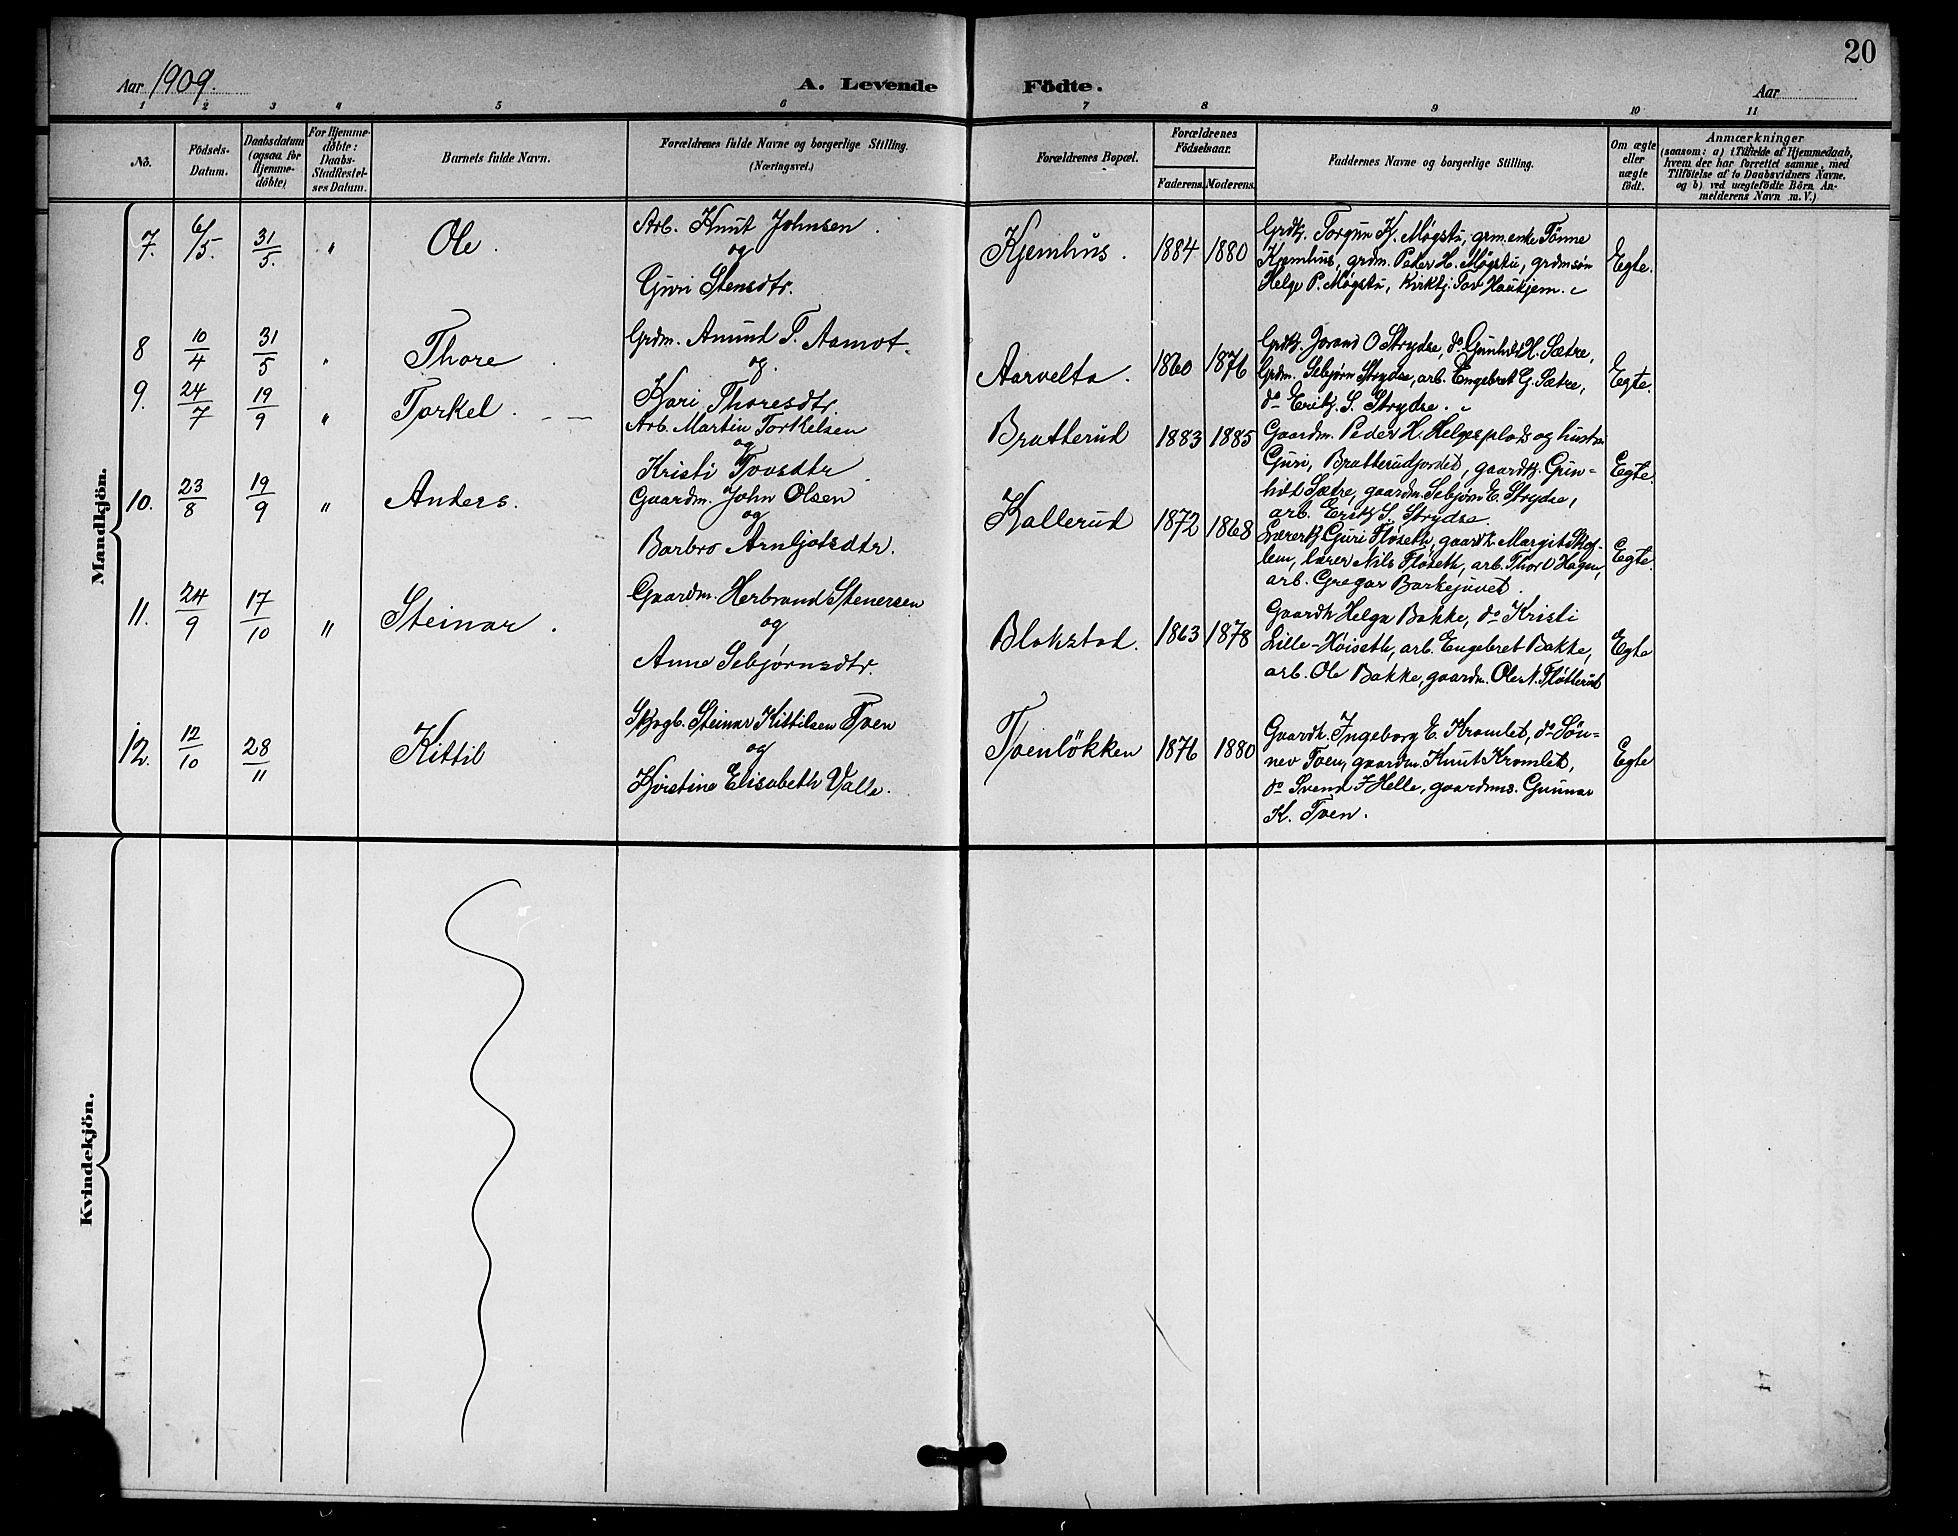 20
Aar 1909.
A. Levende Födte.
Aar
1 2 3 4 5 6 7 8 9 10 11
No.
Födsels-
Datum.
Daabsdatum
(ogsaa for
Hjemme-
döbte)
For Hjemme-
døbte:
Daabs-
Stadfæstel-
ses Datum.
Barnets fulde Navn.
Forældrenes fulde Navne og borgerlige Stilling.
(Næringsvei.)
Forældrenes Bopæl.
Forældrenes
Födselsaar.
Faderens. Moderens.
Faddernes Navne og borgerlige Stilling.
Om ægte
eller
uægte
födt.
Anmærkninger
(saasom: a) i Tilfælde af Hjemmedaab,
hvem der har forrettet samme, med
Tilföielse af to Daabsvidners Navne.
og b) ved uægtefödte Börn An-
melderens Navn m. V.)
Mandkjön.
7. 6/5. 31/5. " Ole.
Arb. Knut Johnsen.
og
Guri Stensdtr.
Kjemhus. 1884 1880
Grdk. Torgun K. Møgstu, grm.enke Tönne
Kjemhus, grdm. Peder H. Møgstu, grdmsön
Helge P. Møgstu, Kirktj. Tov Haukjem.
Egte.
8 10/4 31/5 " Thore
Grdm. Amund T. Aamot.
og.
Kari Thoresdtr.
Aarvelta. 1860 1876
Grdk. Jorand O Strydse, do. Gunhild H. Sætre,
Grdm. Sebjørn Strydse, arb. Engebret G. Sætre,
do Erik. S. Strydse.
Egte.
9. 24/7 19/9 " Torkel.
Arb. Martin Torkelsen
og
Kristi Tovsdtr
Bratterud 1883 1885
Gaardm. Peder H. Helgesplads og hustru
Guri, Bratterudjordet, gaardk. Gun-
hild Sætre, gaardm. Sebjörn E. Strydse,
arb. Erik S. Strydse.
Egte.
10. 23/8 19/9 " Anders.
Gaardm. John Olsen
og
Barbro Arnljotsdtr.
Kallerud 1872 1868
Lærerk. Guri Fløseth, gaardk. Margit Skof-
lem, lærer Nils Fløseth, arb. Thor O Hagen,
arb. Gregar Barkejuvet.
Egte.
11. 24/9 17/10 " Steinar.
Gaardm. Herbrand Stenersen
og
Anne Sebjørnsdtr.
Blakstad. 1863 1878
Gaardk Helga Bakke, do Kristi
Lille-Høiseth, arb. Engebret Bakke,
arb. Ole Bakke, gaardm. Ole N. Fløtterud
Egte
12. 12/10 28/11 Kittil
Skogb. Steinar Kittilsen Tven
og
Kjirstine Elisabeth Valle.
Tvenlökken 1876 1880
Gaardk. Ingeborg E. Kromlet, do Søn-
nev Tven, gaardm. Knut Kromlet,
do Svend J Helle, gaardms. Gunnar
K. Tven.
Egte
Kvindekjön.